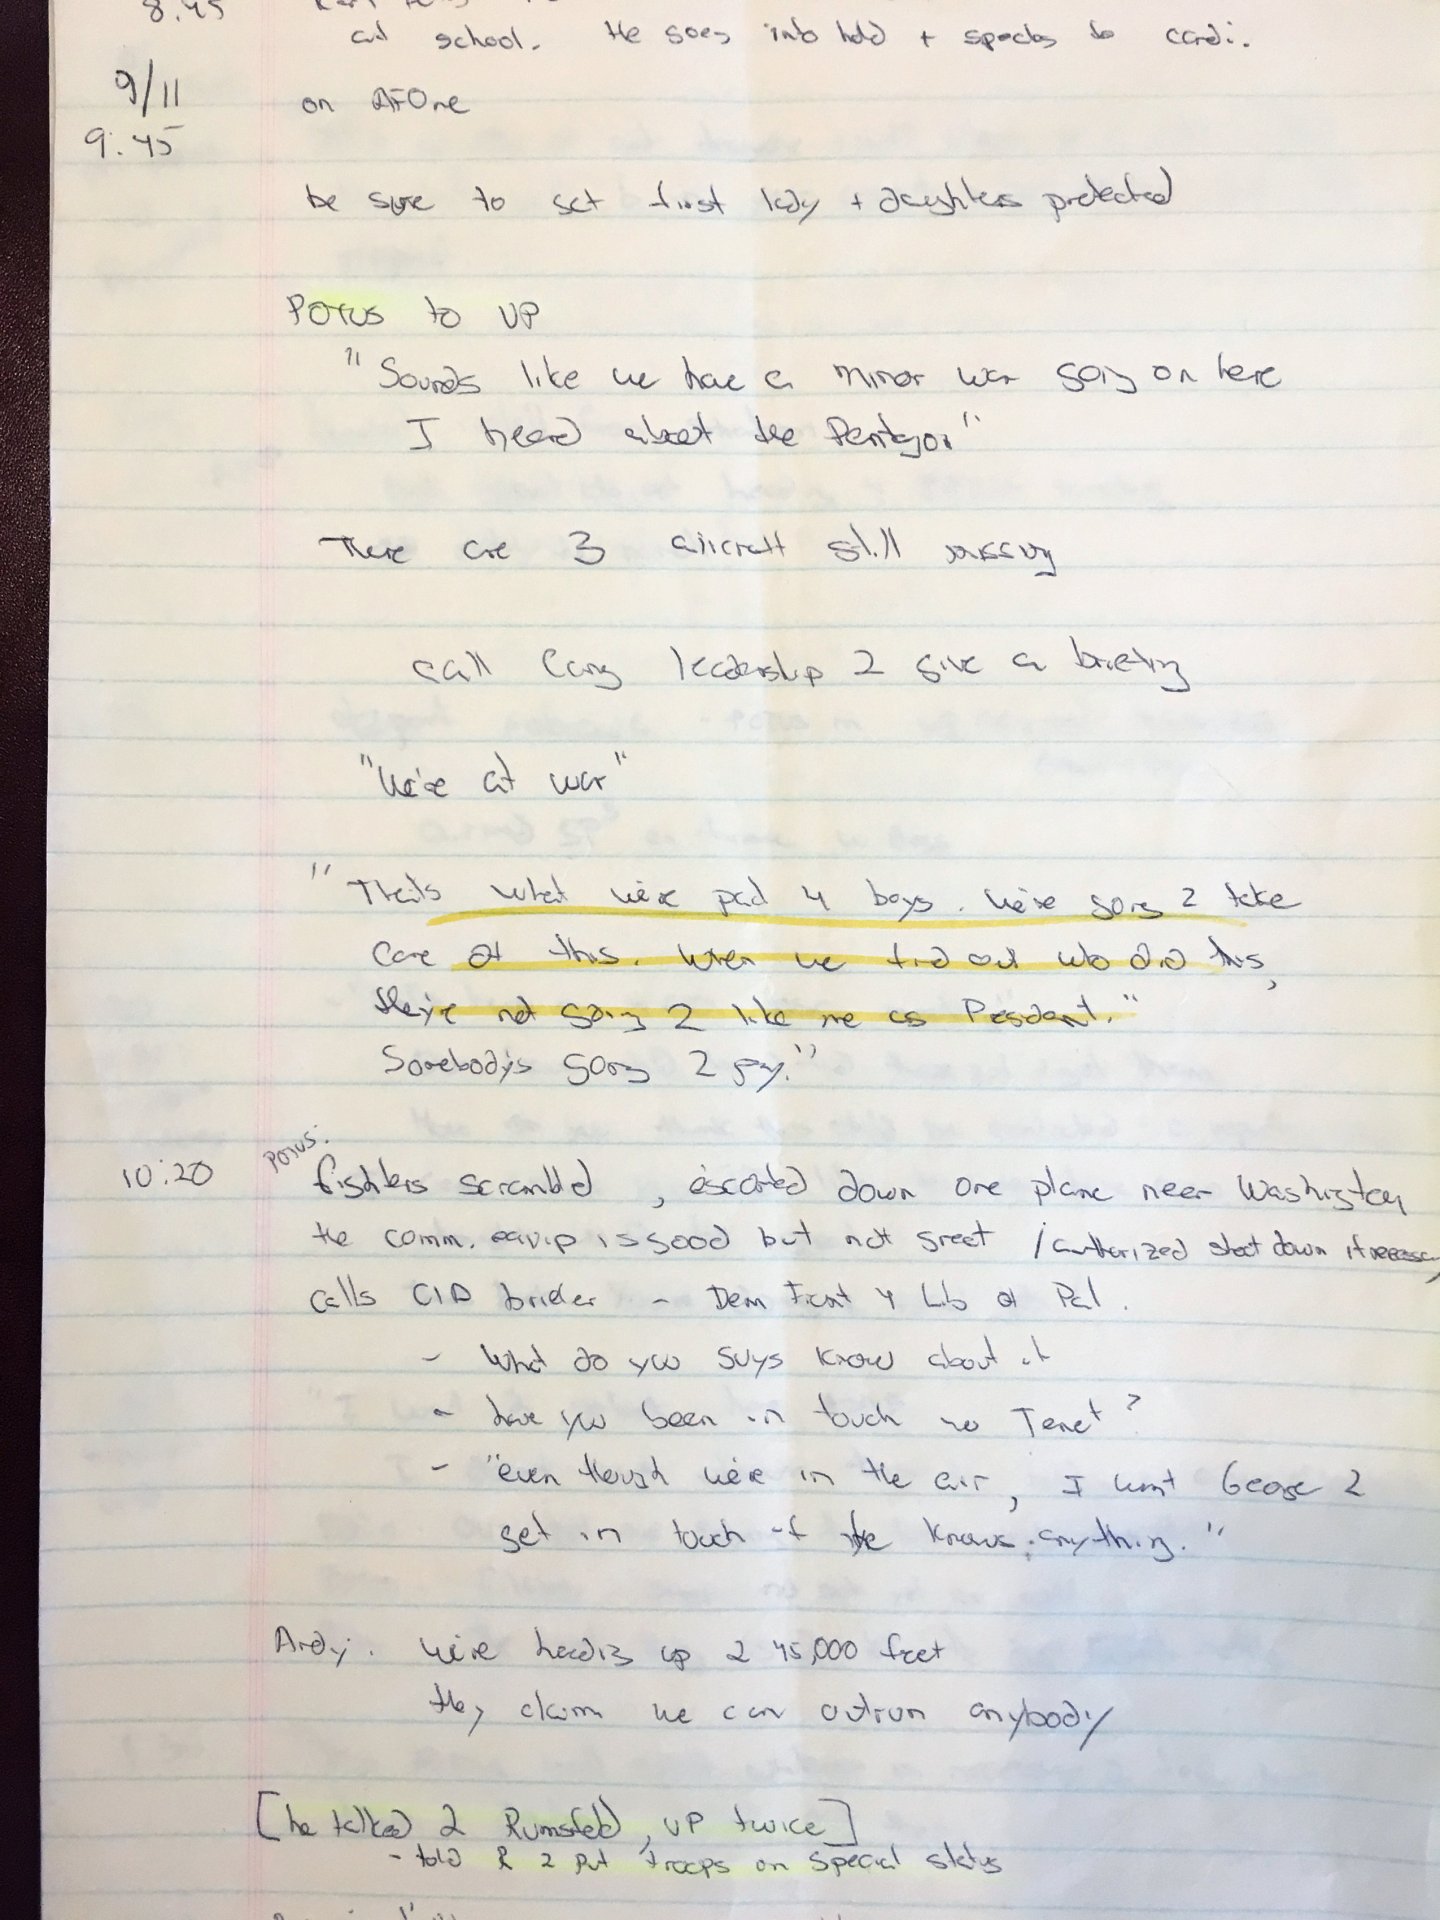 8.45
at school. He goes into hold + speaks to Condi.
9/11 on AFOne
9:45
be sure to get first lady + daughters protected
POTUS to VP
"Sounds like we have a minor war going on here
I heard about the Pentagon"
There are 3 aircraft still missing
call Cong leadership 2 give a briefing
"We're at war"
"Thats what we're paid 4 boys. We're going 2 take
care of this. When we find out who did this,
they're not going 2 like me as President."
Somebody's going 2 pay."
POTUS:
10:20 fighters scrambled, escorted down one plane near Washington
the comm. equip is good but not great / authorized shoot down if necessary
calls CIA briefer - Dem Front 4 Lib of Pal.
- What do you guys know about it
- have you been in touch w Tenet?
- "even though we're in the air, I want George 2
get in touch if he knows anything."
Andy: We're heading up 2 45,000 feet
they claim we can outrun anybody
[he talked 2 Rumsfeld, VP twice]
- told R 2 put troops on special status